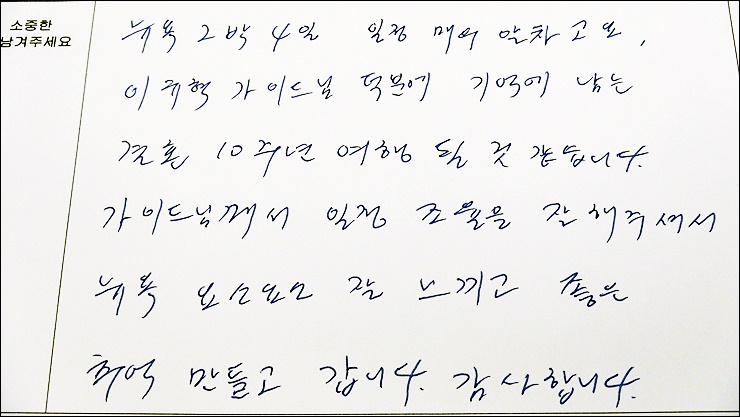 소중한
남겨주세요
뉴욕 2박 4일 일정 매우 알차고요,
이 가이드님 덕분에 기억에 남는
결혼 10주년 여행 될 것 같습니다.
가이드님께서 일정 조율을 잘 해주셔서
뉴욕 요소요소 잘 느끼고 좋은
추억 만들고 갑니다. 감사합니다.